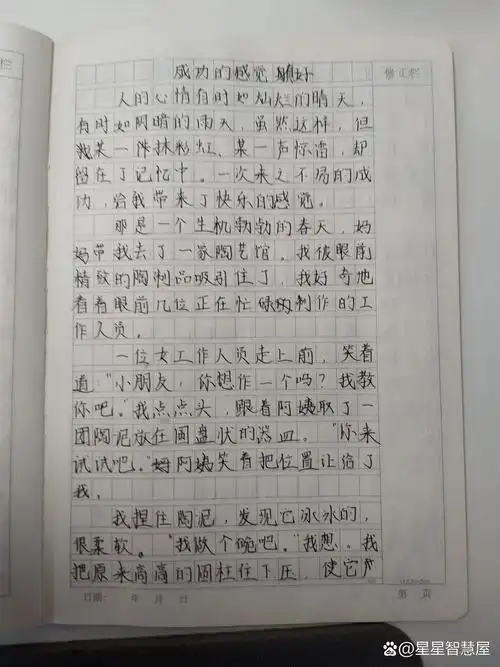 成功的感觉真好
修正栏
人的心情有时如灿烂的晴天,
有时如阴暗的雨天,虽然这样,但
我某一抹彩虹、某一声惊雷,却
留在了记忆中。一次来之不易的成
功,给我带来了快乐的感觉。
那是一个生机勃勃的春天,妈
妈带我去了一家陶艺馆。我被眼前
精致的陶制品吸引住了,我好奇地
看着眼前几位正在忙制作的工
作人员。
一位女工作人员走上前,笑着
道“小朋友,你想作一个吗?我教
你吧。”我点点头,跟着阿姨取了一
团陶泥放在圆盘状的器皿。“你来
试试吧。”阿姨笑着把位置让给了
我。
我捏住陶泥,发现它冰冰的,
很柔软。“我做个碗吧。”我想。我
把原来高高的圆柱往下压,使它
日期: 年 月 日
第 页
栏
@星星智慧屋